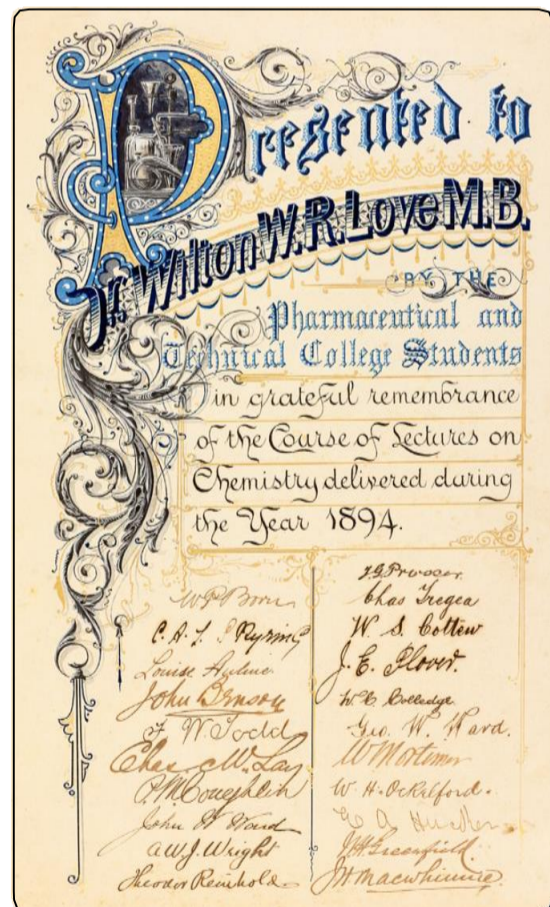 Presented to
Dr. Wilton W.R. Love M.B.
BY THE
Pharmaceutical and
Technical College Students
in grateful remembrance
of the Course of Lectures on
Chemistry delivered during
the Year 1894.
C. A. J.
Louise
John Benson
F. W. Todd
Chas M. Lay
P. McCoughlin
John W Ward
A W J. Wright
Theodor Reinhold
J. G. Prosser.
Chas Tregea
W. S. Cottew
J. E. Glover.
W. C. Colledge
Geo. W. Ward.
W Mortimer
W. H. Ockelford.
J H Greenfield